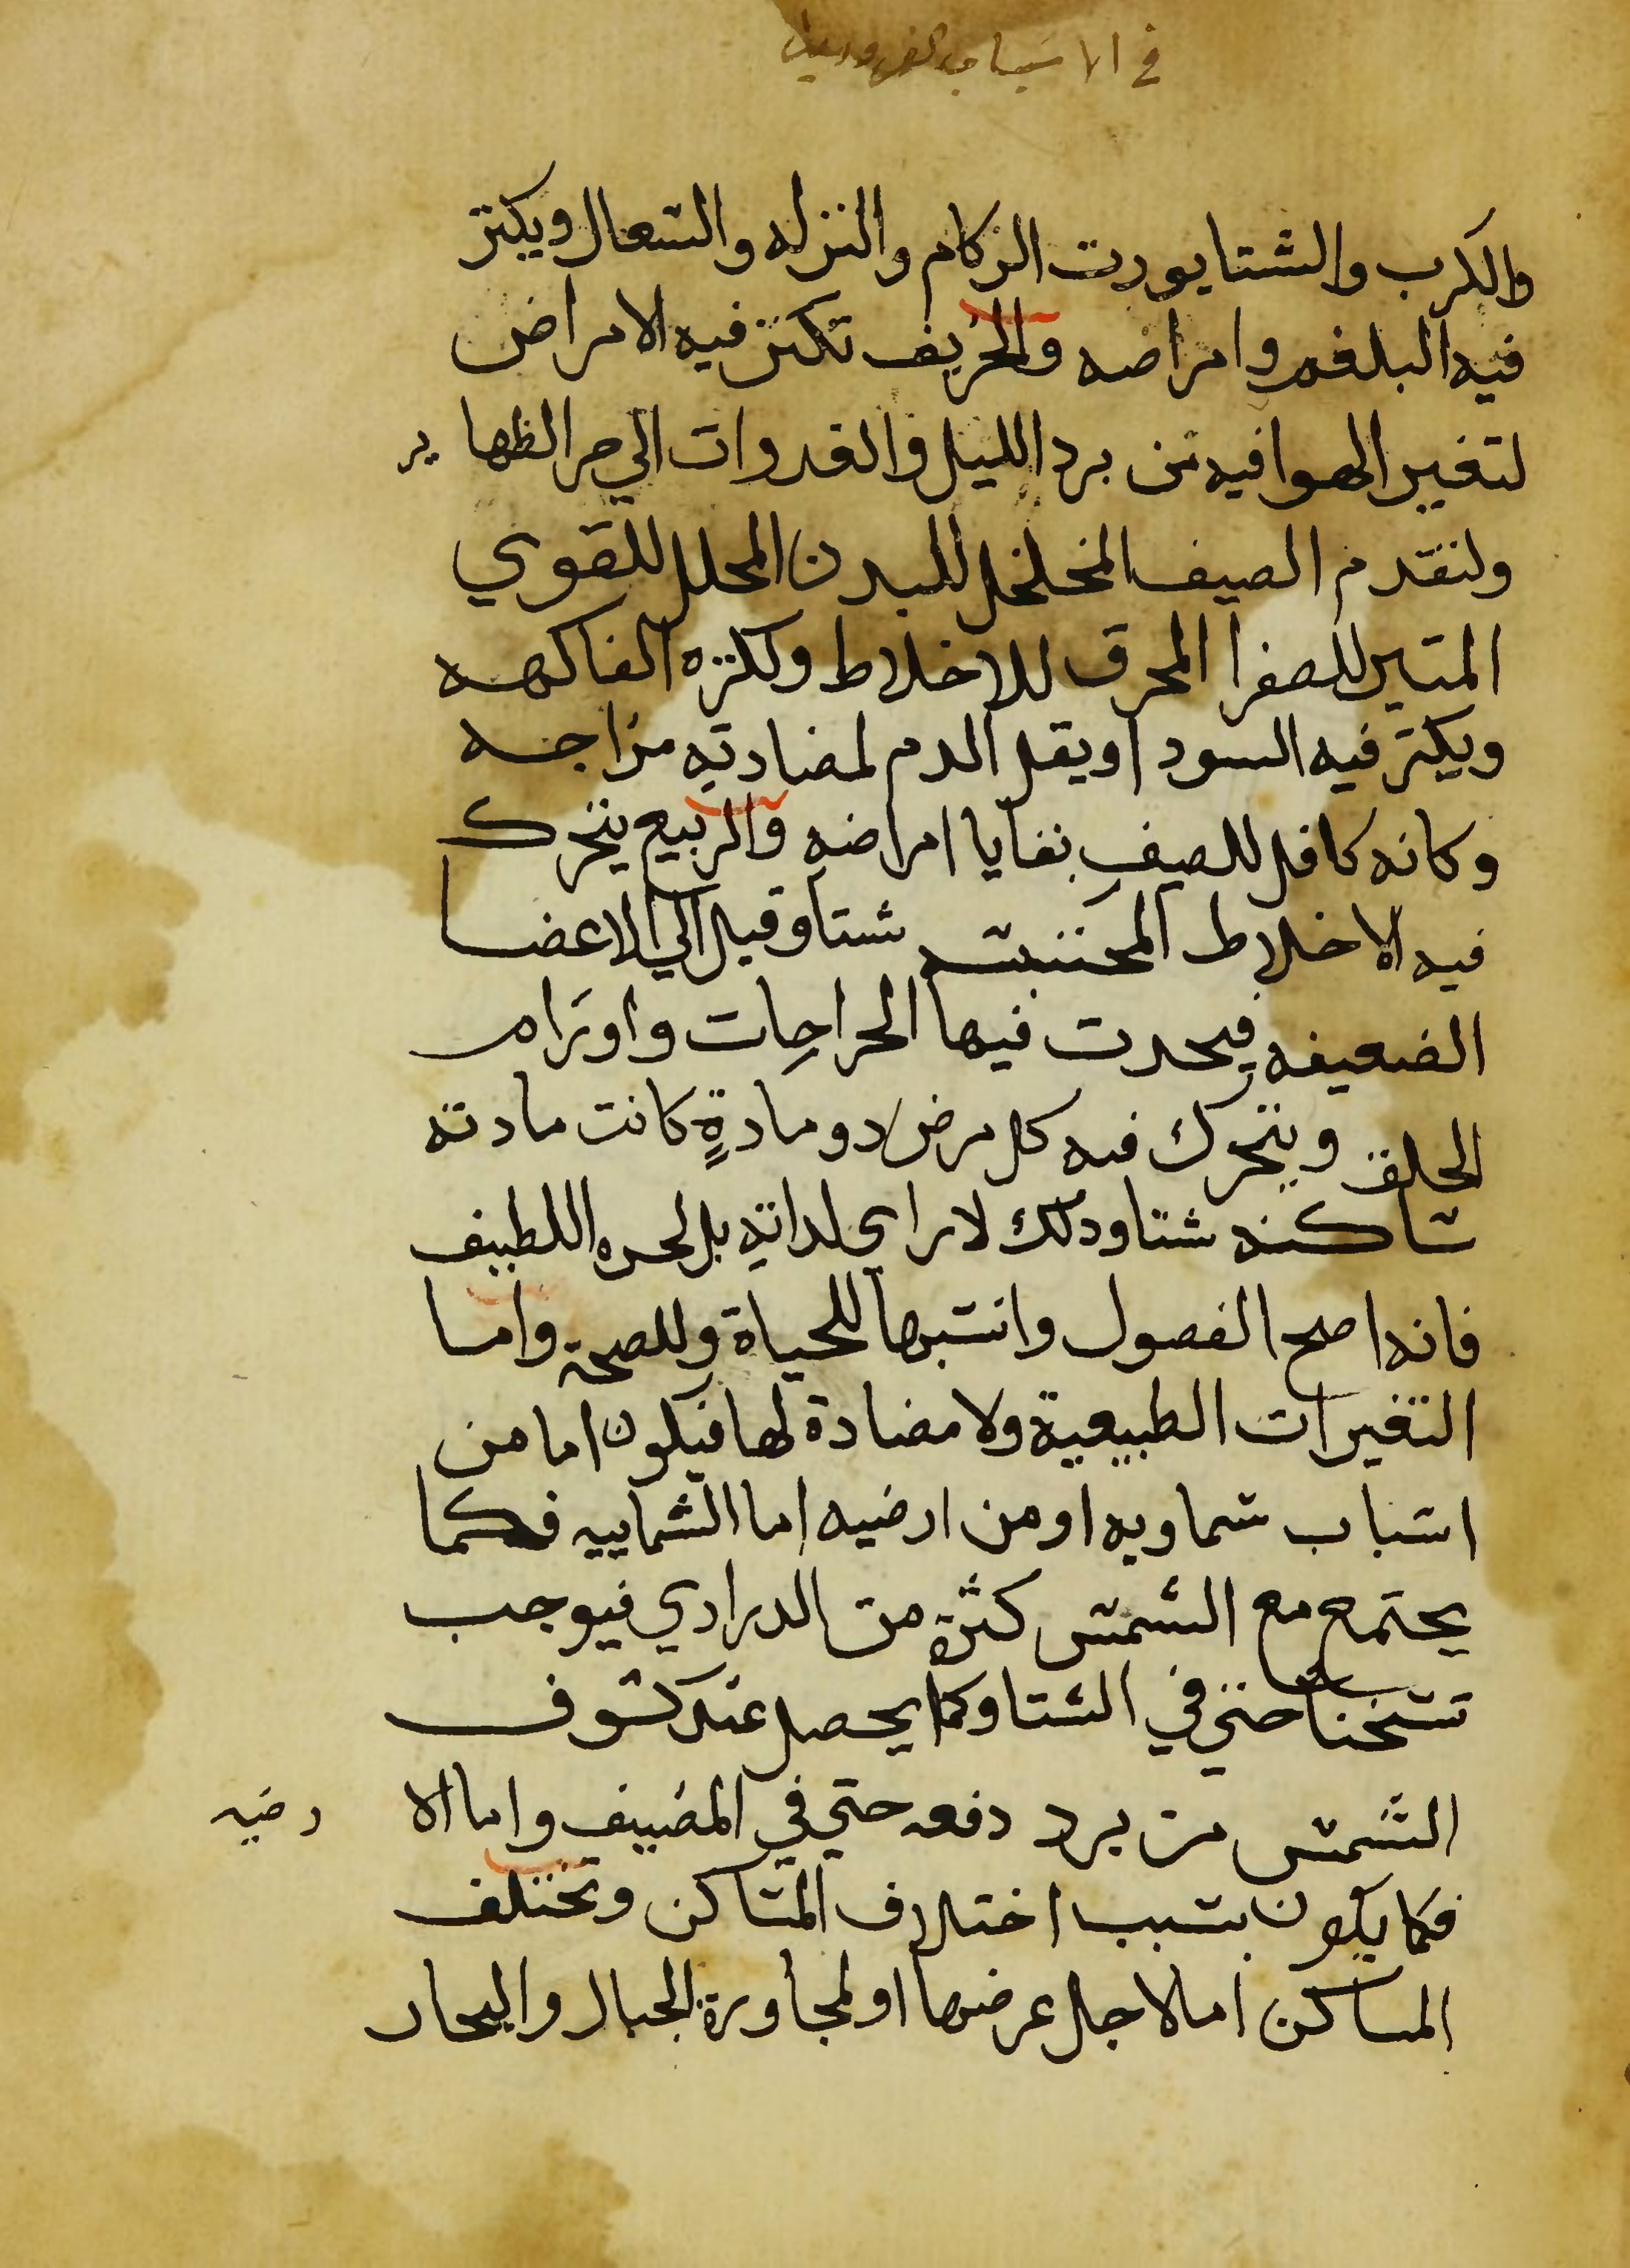 في الاسباب الضروريه
والكرب والشتا يورت الزكام والنزله والسعال ويكتر
فيه البلغم وامراضه والخريف تكتر فيه الامراض
لتغير الهوا فيه من برد الليل والغدوات الي حر الظهاير
ولتقدم الصيف المخلخل للبدن المحلل للقوي
المتير للصفرا المحرق للاخلاط وكتره الفاكهه
ويكتر فيه السودا ويقل الدم لمضادته مزاجه
وكانه كافل للصيف بقايا امراضه والربيع يتحرك
فيه الاخلاط المحتبسه شتا وقيل الي الاعضا
الضعيفه فيحدت فيها الخراجات واورام
الحلق ويتحرك فيه كل مرض دو مادةٍ كانت مادته
ساكنه شتا ودلك لا لراي لداته بل لحره اللطيف
فانه اصح الفصول وانسبها للحياة وللصحة واما
التغيرات الطبيعية ولا مضادة لها فيكون اما من
اسباب سماويه او من ارضيه اما الشماييه فكما
يجتمع مع الشمس كثرة من الدراري فيوجب
تسخنا حتي في الشتا وكما يحصل عند كسوف
الشمس من برد دفعه حتي في المضيف واما الارضيه
فكما يكون بسبب اختلاف المساكن وتختلف
المساكن اما لاجل عرضها او لمجاورة الجبال والبحار